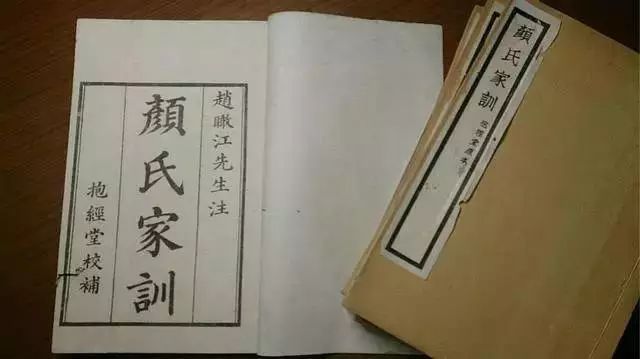 趙瞰江先生注
顏氏家訓
抱經堂校補
顏氏家訓